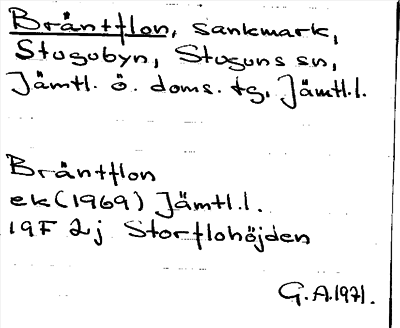 Bråntflon, sankmark,
Stugubyn, Stuguns sn,
Jämtl. ö. doms. tg, Jämtl.l.
Bråntflon
ek (1969) Jämtl.l.
19F 2j Storflohöjden
G.A.1971.